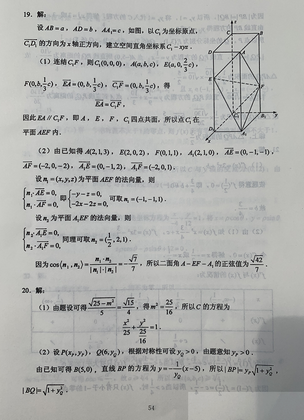 19. 解:
设 AB = a, AD = b, AA₁ = c, 如图, 以 C₁ 为坐标原点,
C₁D₁ 的方向为 x 轴正方向, 建立空间直角坐标系 C₁ - xyz.
(1) 连结 C₁F, 则 C₁(0,0,0), A(a,b,c), E(a,0,2/3 c),
F(0,b,1/3 c), EA = (0,b,1/3 c), C₁F = (0,b,1/3 c), 得
EA = C₁F.
因此 EA // C₁F, 即 A, E, F, C₁ 四点共面, 所以点 C₁ 在
平面 AEF 内.
(2) 由已知得 A(2,1,3), E(2,0,2), F(0,1,1), A₁(2,1,0), AE = (0,-1,-1),
AF = (-2,0,-2), A₁E = (0,-1,2), A₁F = (-2,0,1).
设 n₁ = (x,y,z) 为平面 AEF 的法向量, 则
{ n₁·AE = 0, n₁·AF = 0, 即 { -y-z=0, -2x-2z=0, 可取 n₁ = (-1,-1,1).
设 n₂ 为平面 A₁EF 的法向量, 则
{ n₂·A₁E = 0, n₂·A₁F = 0, 同理可取 n₂ = (1/2, 2, 1).
因为 cos⟨n₁, n₂⟩ = n₁·n₂ / |n₁|·|n₂| = -√7/7, 所以二面角 A-EF-A₁ 的正弦值为 √42/7.
20. 解:
(1) 由题设可得 √(25-m²)/5 = √15/4, 得 m² = 25/16, 所以 C 的方程为
x²/25 + y²/(25/16) = 1.
(2) 设 P(x_P, y_P), Q(6, y_Q), 根据对称性可设 y_Q > 0, 由题意知 y_P > 0.
由已知可得 B(5,0), 直线 BP 的方程为 y = -1/y_Q (x-5), 所以 |BP| = y_P√(1+y_Q²),
|BQ| = √(1+y_Q²).
54